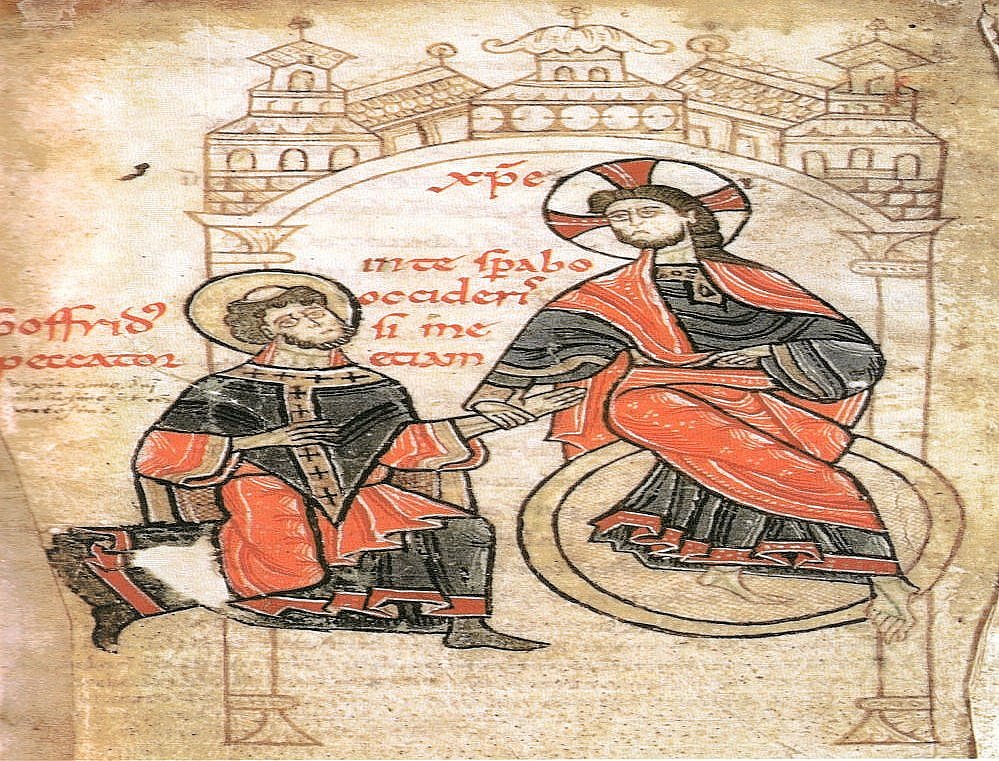 xp̄e
in te sp̄abo
occideriˢ
si me
etiam
Goffridꝰ
peccator